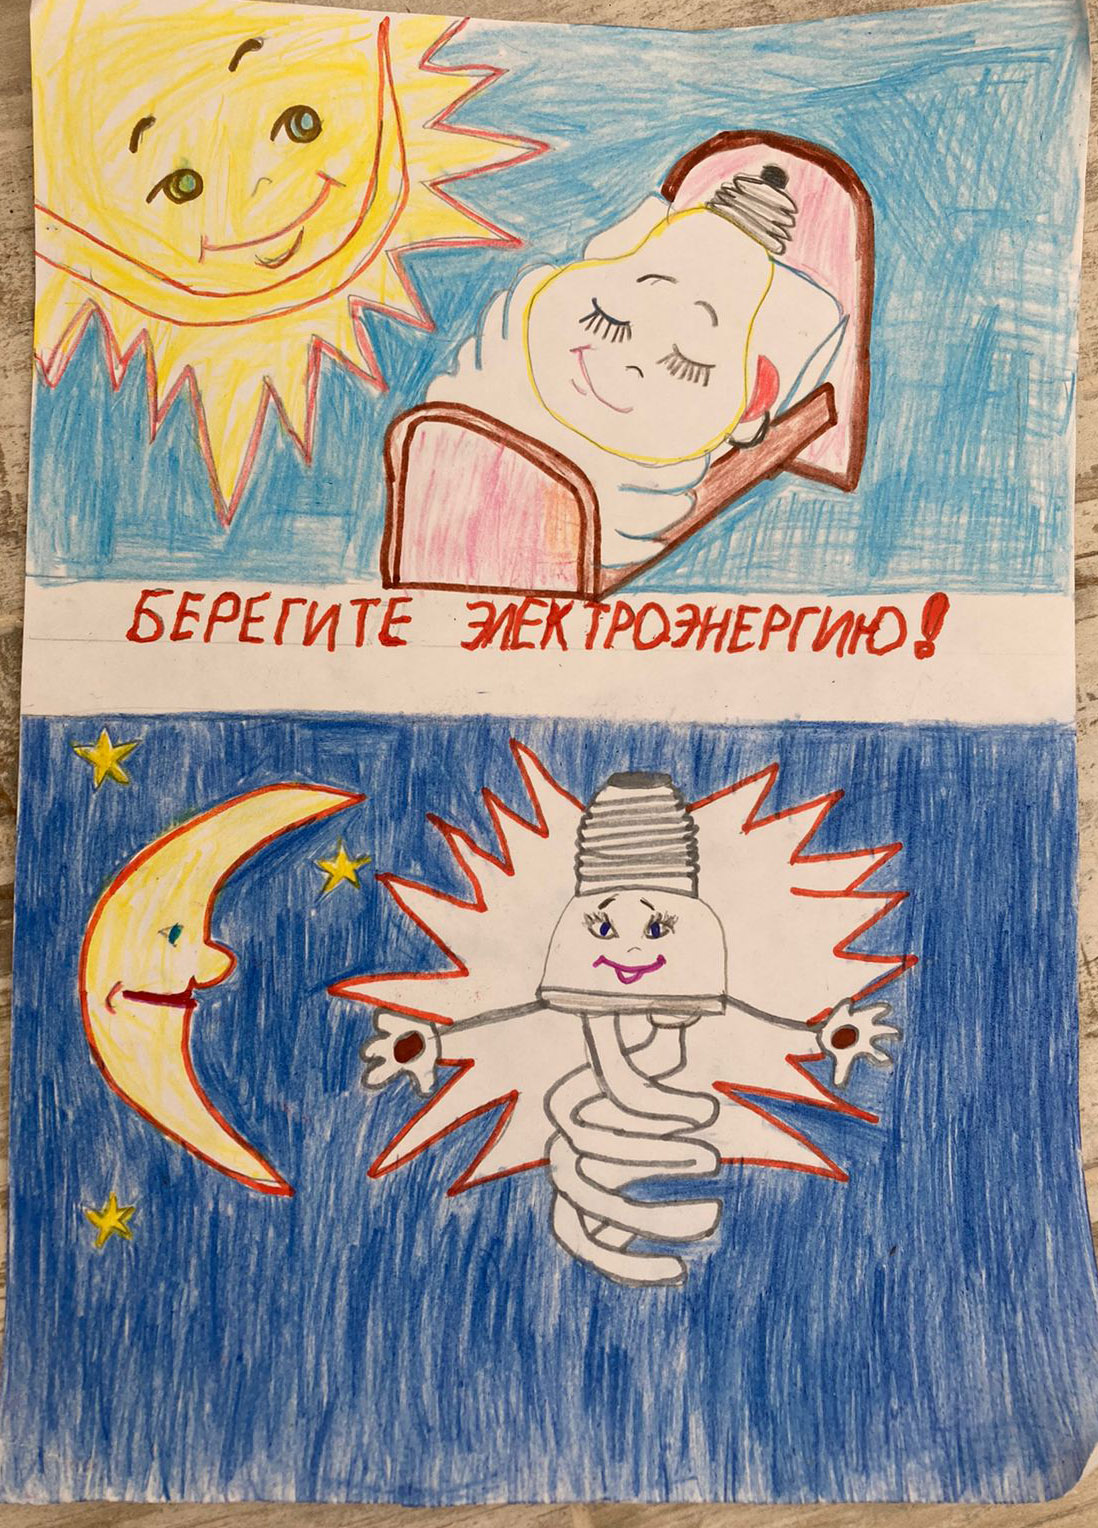 БЕРЕГИТЕ ЭЛЕКТРОЭНЕРГИЮ!